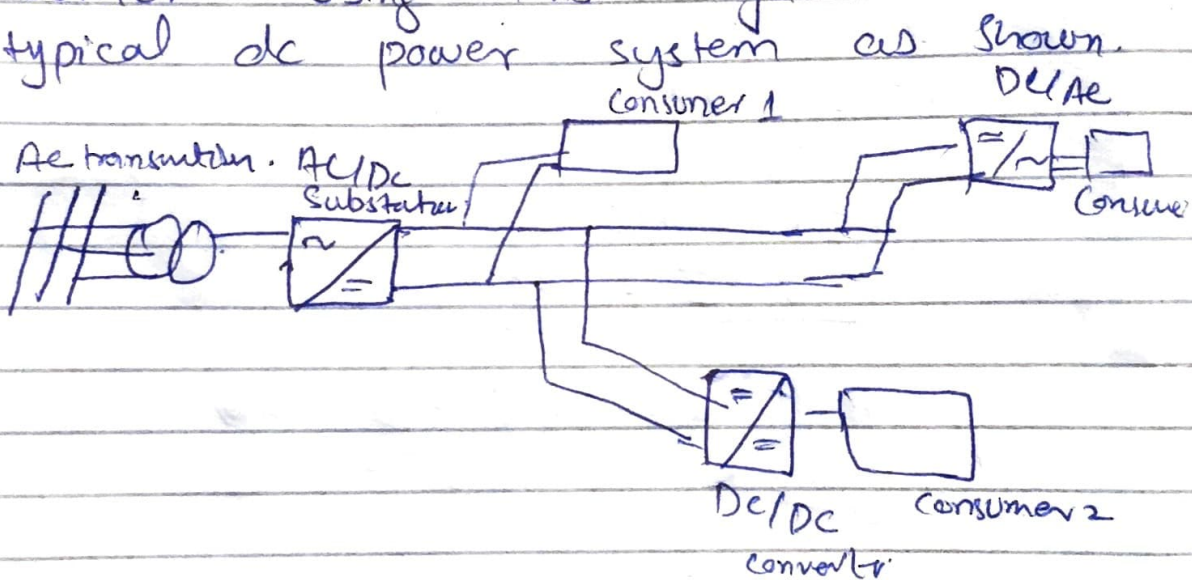 typical dc power system as shown.
Consumer 1
DC/AC
AC transmission. AC/DC
Substation
Consume
DC/DC
Consumer 2
Converter